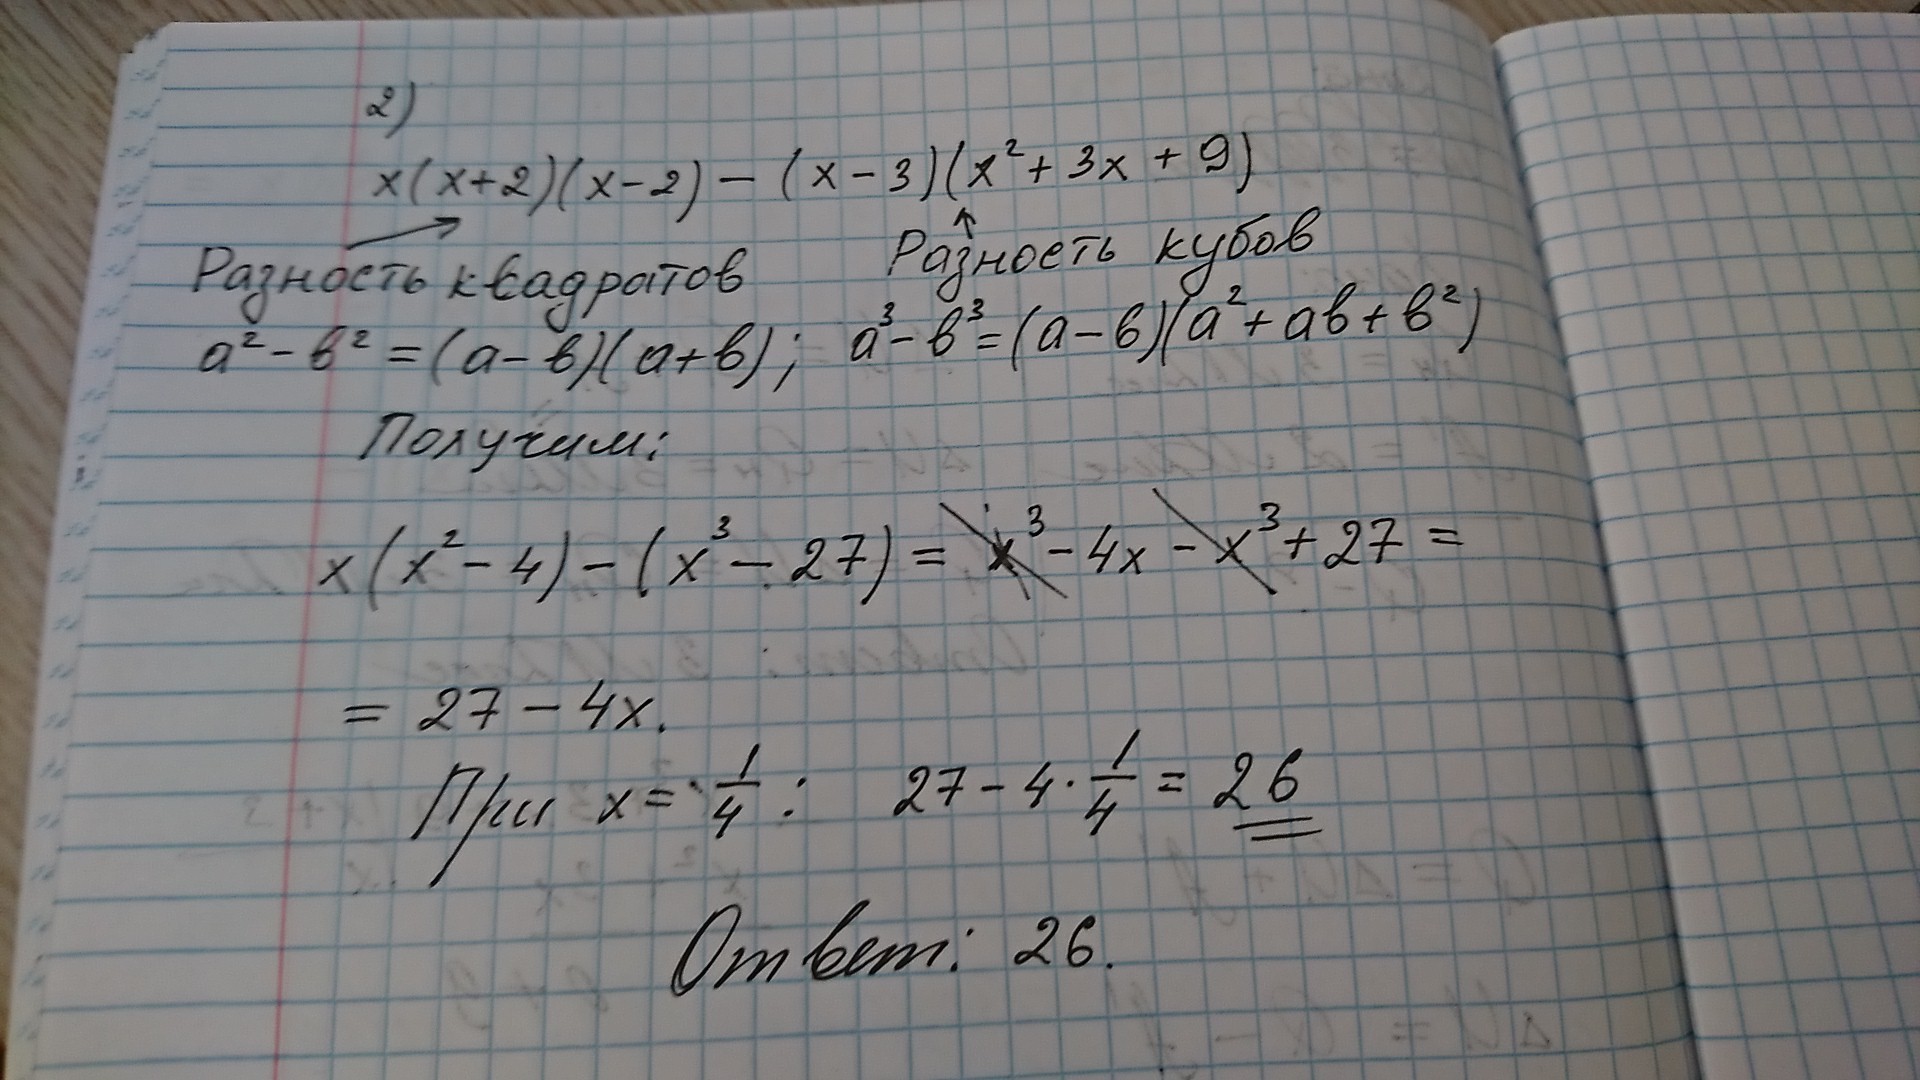 2)
x(x+2)(x-2) - (x-3)(x²+3x+9)
Разность квадратов Разность кубов
a²-b²=(a-b)(a+b); a³-b³=(a-b)(a²+ab+b²)
Получим:
x(x²-4)-(x³-27)=x³-4x-x³+27=
=27-4x.
При x=1/4: 27-4·1/4=26
Ответ: 26.